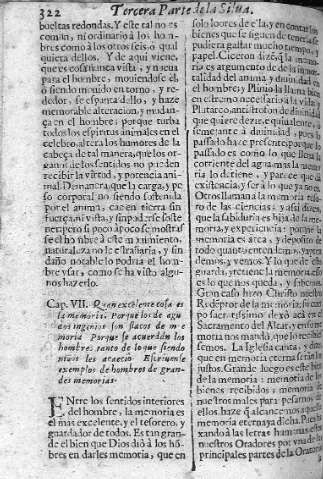 322 Tercera Parte de la Silua.
bueltas redondas. Y este tal no es
comun, ni ordinario à los hom
bres como à los otros seis ò qual
quiera dellos. Y de aqui viene,
que es cosa nunca vista, y nueua
para el hombre, mouiendose èl,
ò siendo mouido en torno, y re-
dedor, se espanta dello, y haze
memorable alteracion, y mudã-
ça en el hombre; porque turba
todos los espiritus animales en el
celebro, altera los humores de la
cabeça de tal manera, que los or-
ganos de los sentidos no pueden
recibir la virtud, y potencia ani-
mal. De manera, que la carga, y pe
so corporal no siendo sostenida
por el anima, cae en tierra sin
fuerça, ni vista, y sin poderse soste
ner; pero si poco à poco se mostras
se el hõbre à este mouimiento,
naturaleza no le estrañaria, y sin
daño notable lo podria el hom-
bre vsar, como se ha visto algu-
nos hazerlo.
Cap. VII. Quan excelente cosa es
la memoria. Porque los de agu
do ingenio son flacos de me
moria. Porque se acuerdan los
hombres tanto de lo que siendo
niños les acaeciò. Escriuense
exemplos de hombres de gran-
des memorias.
ENtre los sentidos interiores
del hombre, la memoria es
el mas excelente, y el tesorero, y
guardador de todos. Es tan gran-
de el bien que Dios diò à los hõ-
bres en darles memoria, que en
solo loores de ella, y en contar los
bienes que se siguen de tenerla se
pudiera gastar mucho tiempo, y
papel. Ciceron dize, que la memo
ria es argumento de la inmor-
talidad del anima y diuinidad en
el hombre; y Plinio la llama bien
en estremo necessario à la vida, y
Plutarco antistrofon de diuinidad
que quiere dezir, equiualente, ò
semejante à diuinidad, pues lo
passado haze presente; porque lo
passado es como lo que lleua la
corriente del agua mas la memo
ria lo detiene, y parece que dà
existencia, y ser à lo que ya no es.
Otros llaman à la memoria teso-
ro de las ciencias, y assi dizen,
que la sabiduria es hija de la me-
moria, y experiencia: porque la
memoria es arca, y deposito de
todo quanto entendemos, apren
demos, y vemos. Y lo que de ella
guarda, y retiene la memoria, esso
es lo que nos queda, y sabemos.
Gran caso hizo Christo nuestro
Redemptor de la memoria, su cuer
po sacratissimo dexò acà en el
Sacramento del Altar, y en forma
moria nos mandò, que lo recibies
semos. La Iglesia canta, y dize,
que en memoria eterna serà el
justo. Grande juego es este bien
de la memoria: memoria de los
bienes recibidos, memoria de
nuestros males para pesarnos de
ellos, haze que alcancemos aquella
memoria eterna ya dicha. Pues ha
xando à las letras humanas, los
nuestros Oradores por vna de las
principales partes de la Oratoria